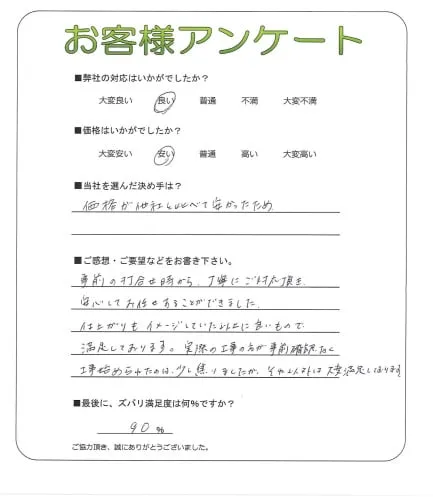 お客様アンケート
■弊社の対応はいかがでしたか？
大変良い 良い 普通 不満 大変不満
■価格はいかがでしたか？
大変安い 安い 普通 高い 大変高い
■当社を選んだ決め手は？
価格が他社と比べて安かったため
■ご感想・ご要望などをお書き下さい。
事前の打合せ時から、丁寧にご対応頂き
安心してお任せすることができました。
仕上がりもイメージしていた以上に良いもので
満足しております。実際の工事の方が事前確認なく
工事始められたのは、少し焦りましたが、それ以外は大変満足しております
■最後に、ズバリ満足度は何%ですか？
90 %
ご協力頂き、誠にありがとうございました。